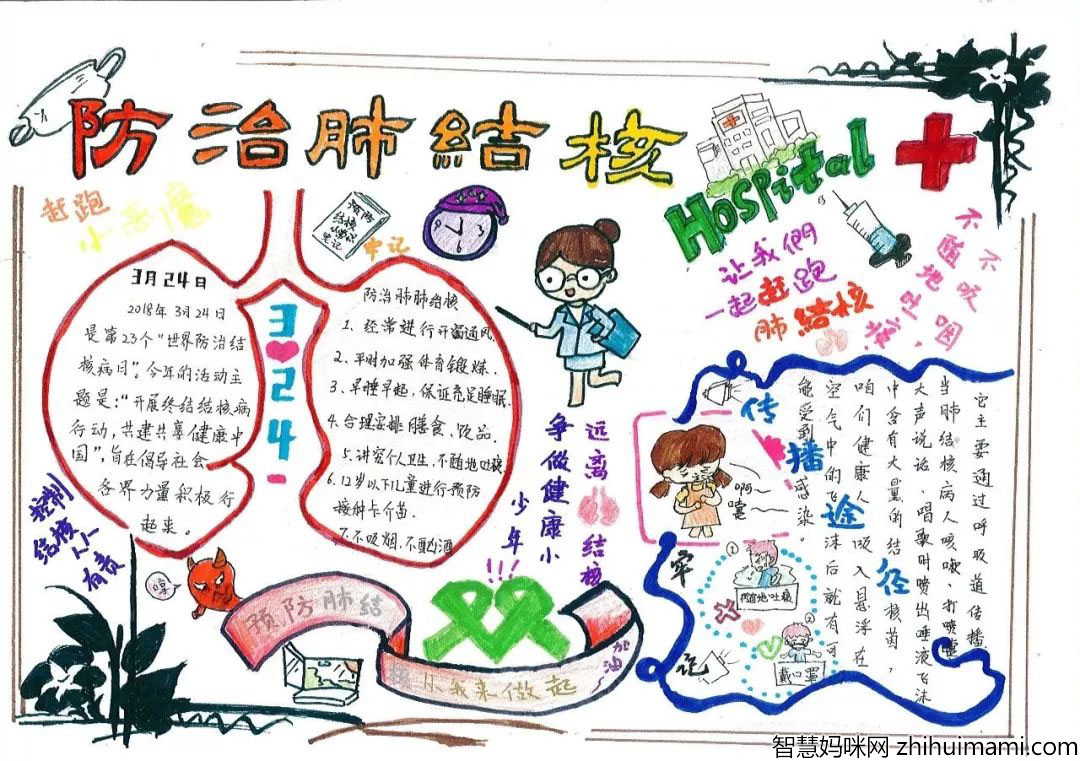 防治肺結核
Hospital
赶跑
小恶魔
预防
结核
小常识
牢记
牢记
3月24日
2018年3月24日
是第23个“世界防治结
核病日”，今年的活动主
题是：“开展终结结核病
行动，共建共享健康中
国”，旨在倡导社会
各界力量积极行
起来。
3
2
4
防治肺肺结核
1、经常进行开窗通风.
2、平时加强体育锻炼.
3、早睡早起，保证充足睡眠.
4、合理安排膳食、饮品.
5、讲究个人卫生、不随地吐痰
6、12岁以下儿童进行预防
接种卡介苗.
7、不吸烟.不酗酒
让我們
一起赶跑
肺結核
不吸烟
不随地吐痰
远离结核
争做健康小
少年!!!
控制
结核人人
有责
哼
预防肺结
核从我来做起
加油
传播途径
它主要通过呼吸道传播.
当肺结核病人咳嗽、打喷嚏
大声说话 唱歌时喷出唾液飞沫
中含有大量的结核菌，
咱们健康人吸入悬浮在
空气中的飞沫后就有可
能受到感染。
啊~
嚏
牢
记
①
随地吐痰
②
戴口罩
智慧妈咪网 zhihuimami.com